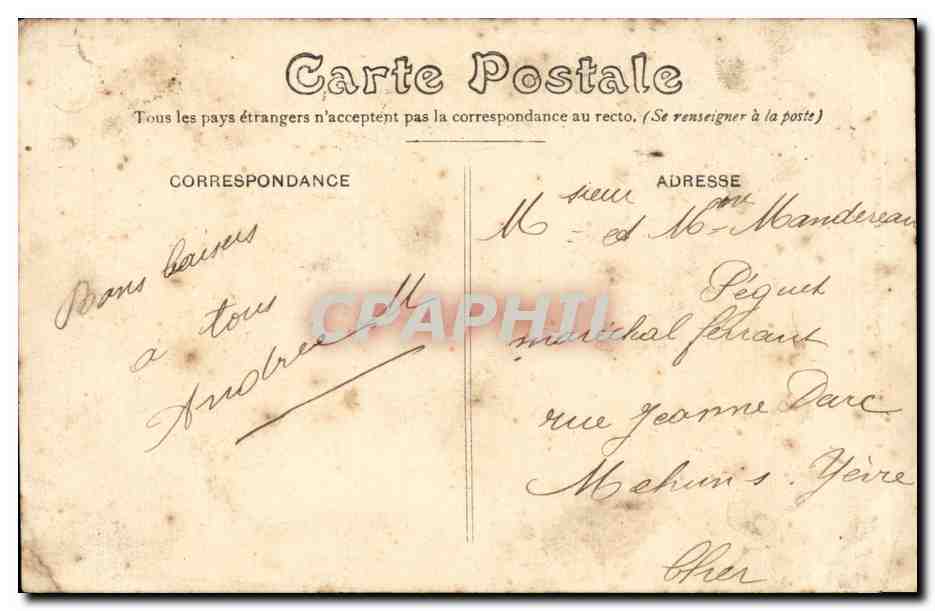 Carte Postale
Tous les pays étrangers n'acceptent pas la correspondance au recto. (Se renseigner à la poste)
CORRESPONDANCE
Bons baisers
a tous
Andrée M
ADRESSE
Msieur et Mme Mandereau
Péguet
maréchal ferrant
rue Jeanne Darc
Mehun s. Yèvre
Cher
CPAPHIL